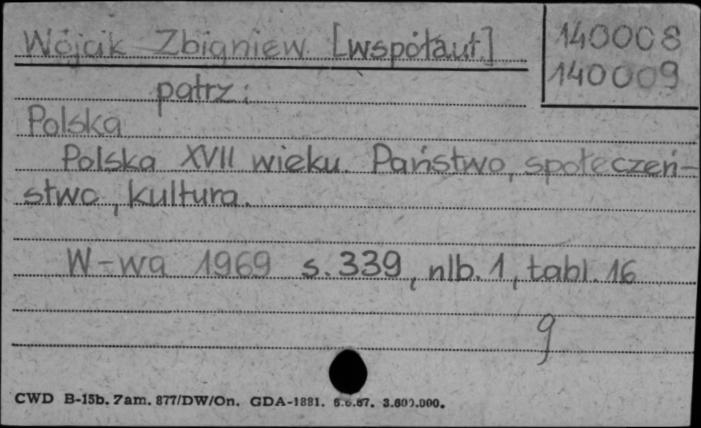 Wójcik Zbigniew [współaut.]
140008
140009
patrz:
Polska
Polska XVII wieku. Państwo, społeczeń-
stwo, kultura.
W-wa 1969 s. 339, nlb. 1, tabl. 16
g
CWD B-15b. Zam. 877/DW/On. GDA-1881. 6.6.67. 3.600.000.